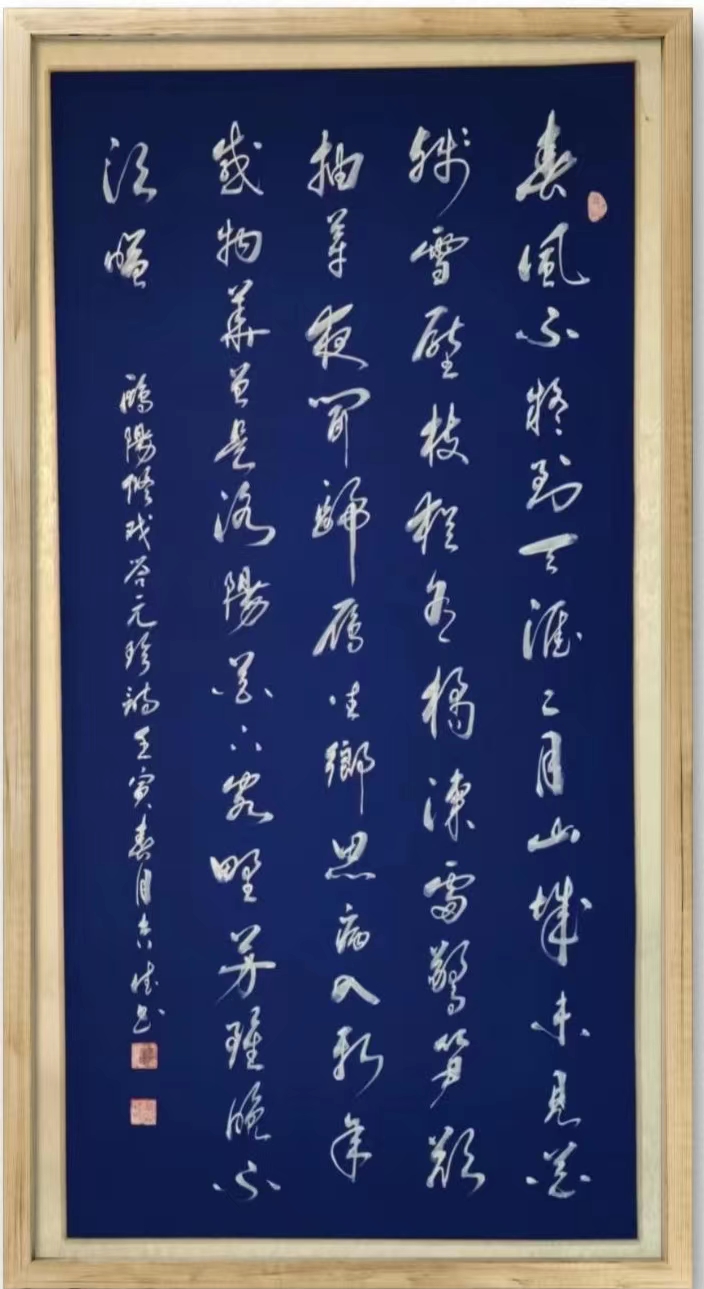 春風不疑到天涯二月山城未見花
殘雪壓枝猶有橘凍雷驚筍欲
抽芽夜聞歸雁生鄉思病入新年
感物華曾是洛陽花下客野芳雖晚不
須嗟
歐陽修戏答元珍詩壬寅春月書